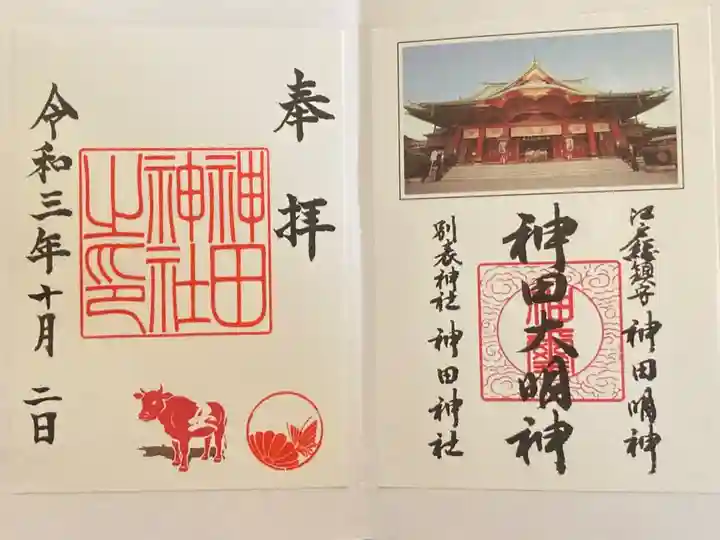 奉拝
神田
神社
之印
令和三年十月二日
江戸総鎮守 神田明神
神田大明神
別表神社 神田神社